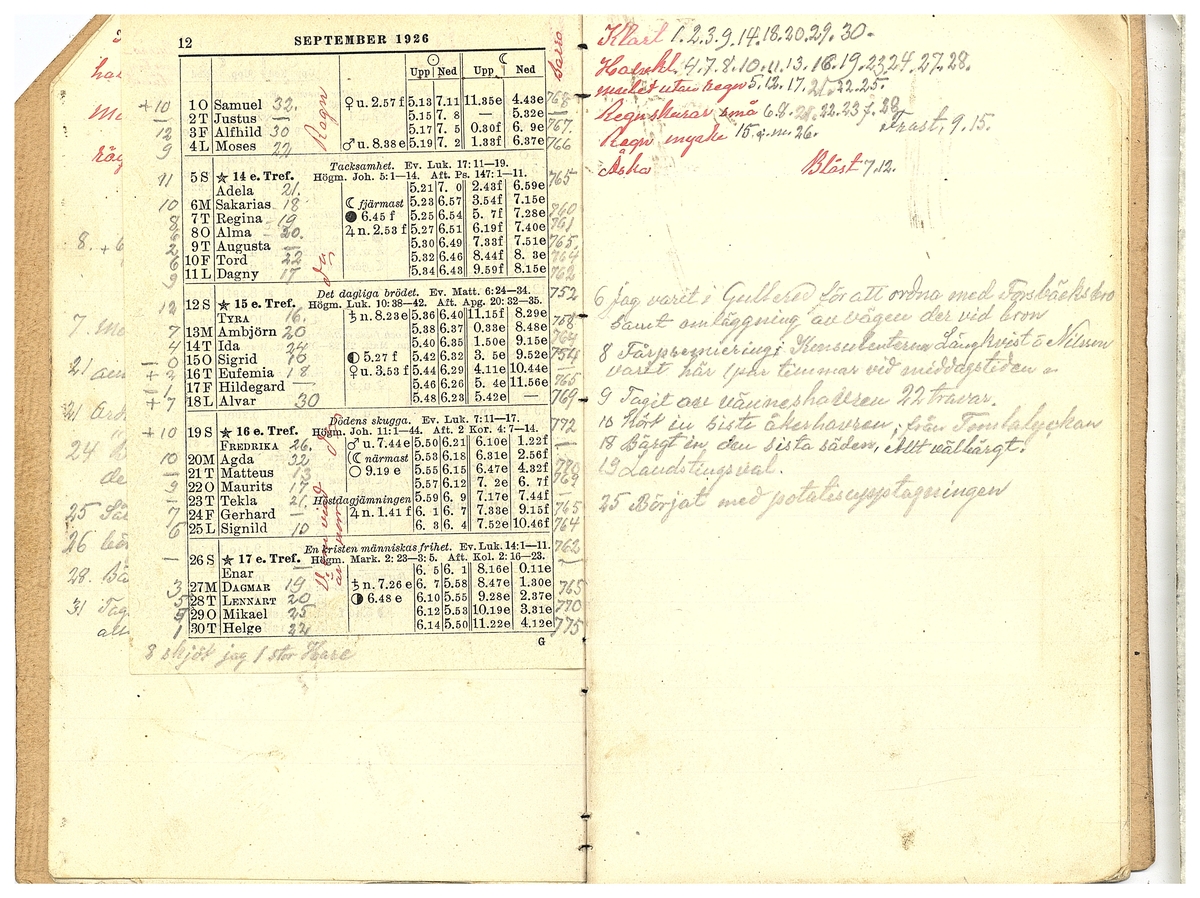 12 SEPTEMBER 1926
Upp Ned Upp Ned
+10 1 O Samuel 32. ♀ u. 2.57 f 5.13 7.11 11.35e 4.43e 768
2 T Justus — 5.15 7. 8 — 5.32e —
12 3 F Alfhild 30 5.17 7. 5 0.30f 6. 9e 767.
9 4 L Moses 22 ♂ u. 8.38 e 5.19 7. 2 1.33f 6.37e 766
Regn
Tacksamhet. Ev. Luk. 17: 11—19.
11 5 S ★ 14 e. Tref. Högm. Joh. 5: 1—14. Aft. Ps. 147: 1—11. 765
Adela 21. 5.21 7. 0 2.43f 6.59e
10 6 M Sakarias 18 ☾ fjärmast 5.23 6.57 3.54f 7.15e 760
8 7 T Regina 19 ● 6.45 f 5.25 6.54 5. 7f 7.28e 761
8 O Alma 20. ♃ n. 2.53 f 5.27 6.51 6.19f 7.40e —
9 T Augusta — 5.30 6.49 7.33f 7.51e 765.
6 10 F Tord 22 5.32 6.46 8.44f 8. 3e 764
9 11 L Dagny 17 5.34 6.43 9.59f 8.15e 762
Det dagliga brödet. Ev. Matt. 6: 24—34. 752
12 12 S ★ 15 e. Tref. Högm. Luk. 10: 38—42. Aft. Apg. 20: 32—35.
TYRA 16. ♄ n. 8.23 e 5.36 6.40 11.15f 8.29e
7 13 M Ambjörn 20 5.38 6.37 0.33e 8.48e 758
4 14 T Ida 24 5.40 6.35 1.50e 9.15e 764
0 15 O Sigrid 10 ◐ 5.27 f 5.42 6.32 3. 5e 9.52e 754
+2 16 T Eufemia 18 ♀ u. 3.53 f 5.44 6.29 4.11e 10.44e —
17 F Hildegard — 5.46 6.26 5. 4e 11.56e 765
+7 18 L Alvar 30 5.48 6.23 5.42e — 769
Dödens skugga. Ev. Luk. 7: 11—17. 772
+10 19 S ★ 16 e. Tref. Högm. Joh. 11: 1—44. Aft. 2 Kor. 4: 7—14.
FREDRIKA 26. ♂ u. 7.44 e 5.50 6.21 6.10e 1.22f
10 20 M Agda 32 ☾ närmast 5.53 6.18 6.31e 2.56f —
21 T Matteus 13 ○ 9.19 e 5.55 6.15 6.47e 4.32f 770
9 22 O Maurits 17 5.57 6.12 7. 2e 6. 7f 769
23 T Tekla 21. Höstdagjämningen 5.59 6. 9 7.17e 7.44f —
7 24 F Gerhard — ♃ n. 1.41 f 6. 1 6. 7 7.33e 9.15f 765
6 25 L Signild 10 6. 3 6. 4 7.52e 10.46f 764
En kristen människas frihet. Ev. Luk. 14: 1—11. 762
— 26 S ★ 17 e. Tref. Högm. Mark. 2: 23—3: 5. Aft. Kol. 2: 16—23.
Enar — 6. 5 6. 1 8.16e 0.11e
3 27 M DAGMAR 19 ♄ n. 7.26 e 6. 7 5.58 8.47e 1.30e 765
5 28 T LENNART 20 ◑ 6.48 e 6.10 5.55 9.28e 2.37e 770
5 29 O Mikael 25 6.12 5.53 10.19e 3.31e
1 30 T Helge 22 6.14 5.50 11.22e 4.12e 775
G
8 skjöt jag 1 stor Hare
Klart 1. 2. 3. 9. 14. 18. 20. 29. 30.
Halvkl. 4. 7. 8. 10. 11. 13. 16. 19. 23 24. 27. 28.
mulet utan regn 5. 12. 17. 21. 22. 25.
Regnskurar små 6. 8. 21. 22. 23 f. 28
Frost, 9. 15.
Regn mycke 15. 26.
Åska Blåst 7. 12.
6 jag varit i Gullered för att ordna med Forsbäcksbro
samt omläggning av vägen der vid bron
8 Fårpremiering; Konsulenterna Långkvist o Nilsson
varit här par timmar vid middagstiden
9 Tagit av vänneshavren 22 travar.
10 Kört in sista åkerhavren, från
18 Bärgt in, den sista säden, Allt välbärgt.
19 Landstingsval.
25 Börjat med potatesupptagningen